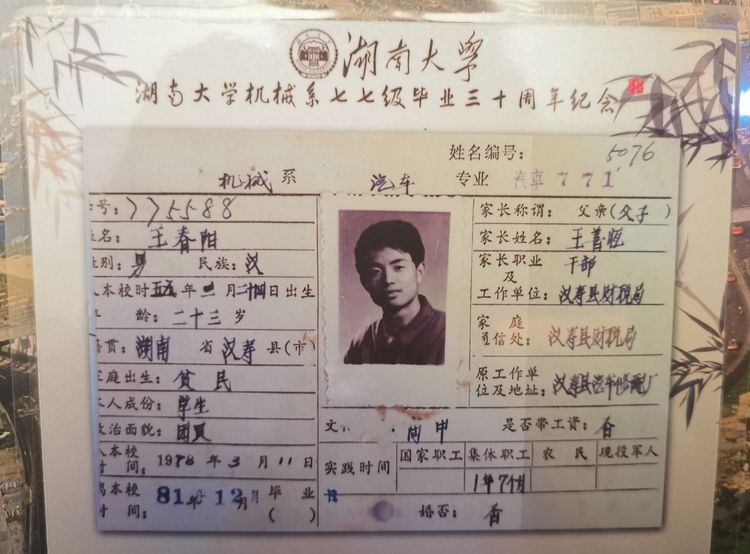 湖南大学
湖南大学机械系七七级毕业三十周年纪念
姓名编号: 5076
机械 系 汽车 专业 汽车771
号: 775588
姓名: 王春阳
性别: 男 民族: 汉
入本校时 年 月 日出生
年 龄: 二十三 岁
籍贯: 湖南 省 汉寿 县(市)
家庭出生: 贫民
本人成份: 学生
政治面貌: 团员
入本校时间: 1978 年 3 月 11 日
离本校时间: 81年 12月 毕业 ( )
家长称谓: 父亲(父子)
家长姓名: 王善恒
家长职业及工作单位: 干部 汉寿县财税局
家庭通信处: 汉寿县财税局
原工作单位及地址: 汉寿县汽车修配厂
文 高中 是否带工资: 否
实践时间 国家职工 集体职工 农民 现役军人
1年7个月
婚否: 否